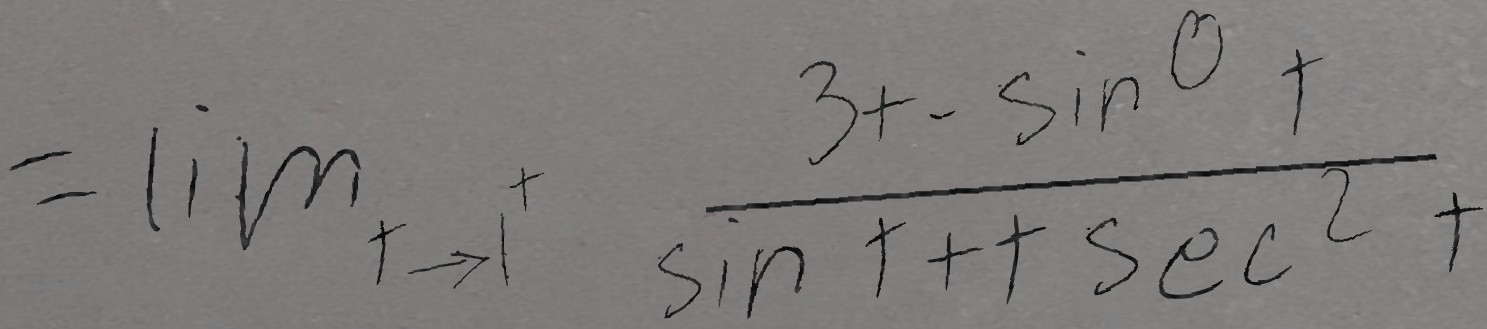 = lim t→1⁺ (3t - sin⁰ t) / (sin t + t sec² t)